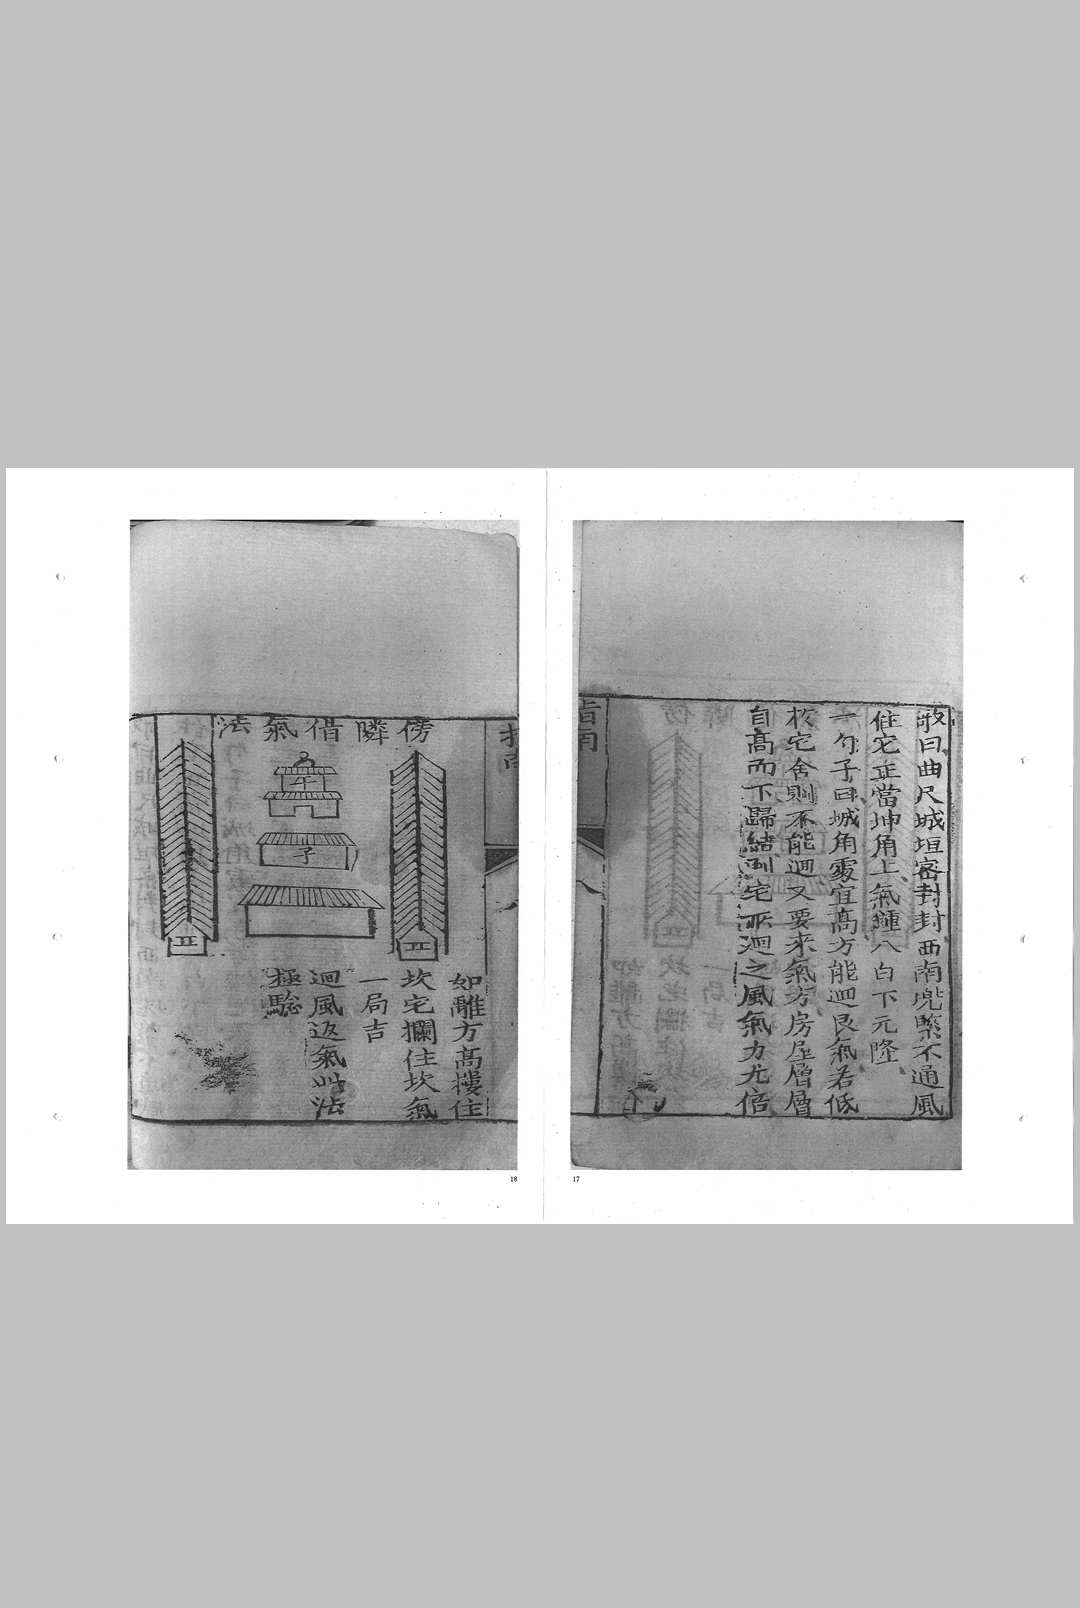 敬曰曲尺城垣密封封西南兜緊不通風
住宅正當坤角上氣鍾八白下元隆
一勺子曰城角處宜高方能迴艮氣若低
於宅舍則不能迴又要來氣方房屋層層
自高而下歸結到宅所迴之風氣力尤倍
指南
17
傍隣借氣法
午
子
如離方高摟住
坎宅攔住坎氣
一局吉
迴風返氣此法
極騐
18